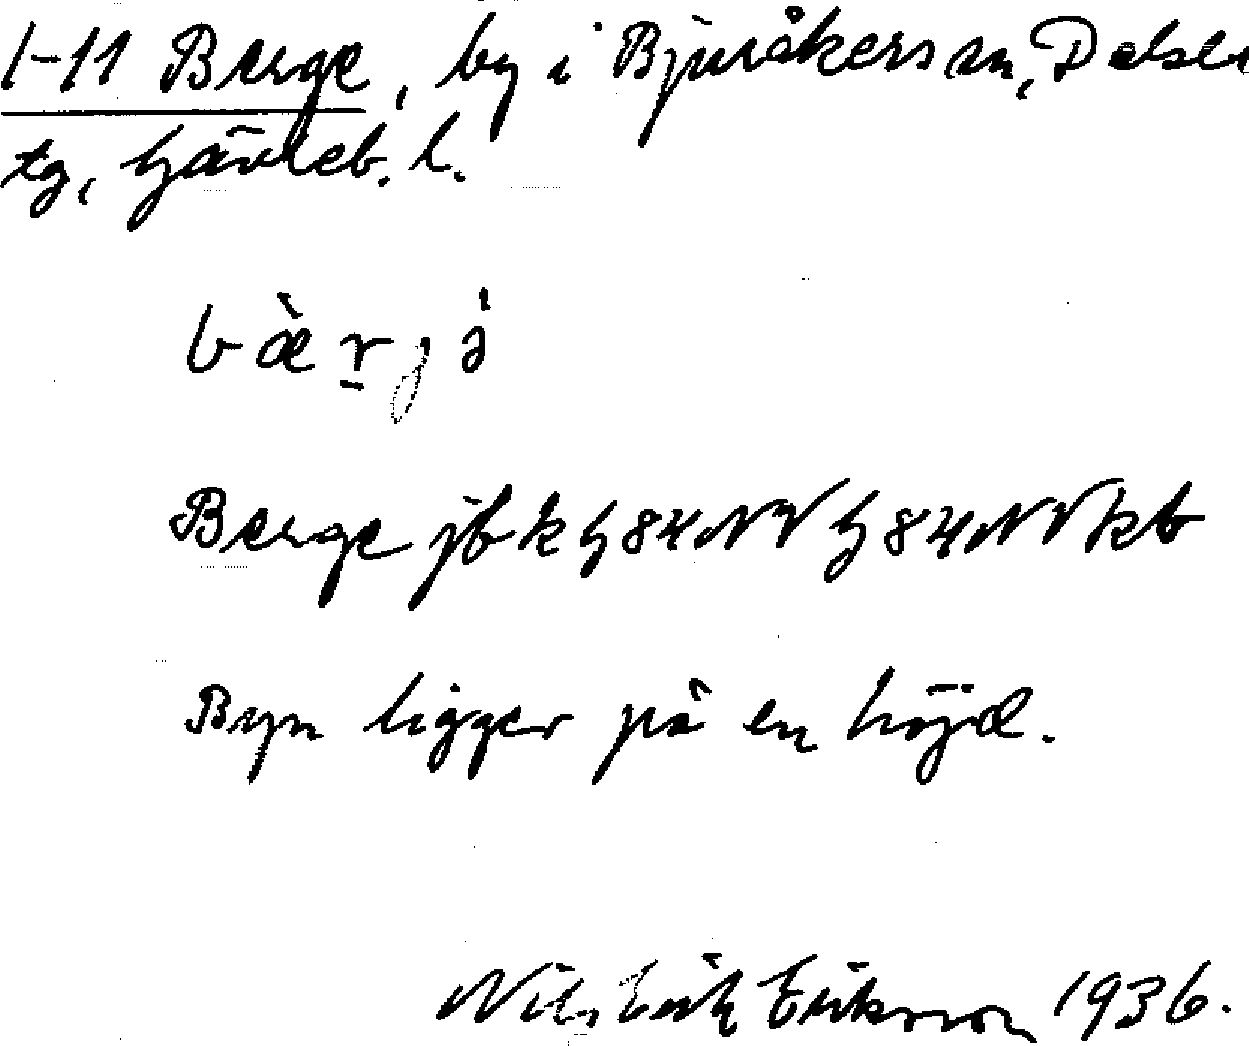 1-11 Berge, by i Bjuråkers sn, Delsbo
tg, Gävleb. l.
bæ̀rjə̇
Berge jb k G 84 NV G 84 NV kb
Byn ligger på en höjd.
Nils Erik Eriksson 1936.